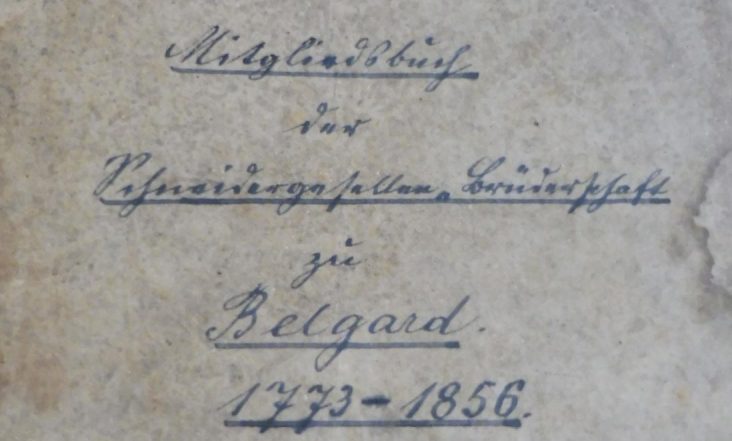 Mitgliedsbuch
der
Schneidergesellen-Brüderschaft
zu
Belgard.
1773-1856.